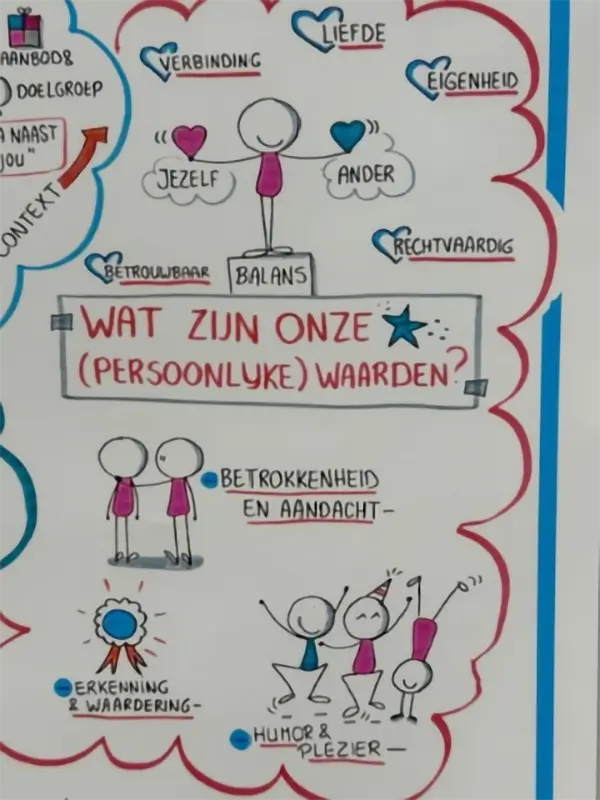 AANBOD &
DOELGROEP
NAAST
JOU"
CONTEXT
VERBINDING
LIEFDE
EIGENHEID
JEZELF
ANDER
RECHTVAARDIG
BETROUWBAAR
BALANS
WAT ZIJN ONZE
(PERSOONLYKE) WAARDEN?
BETROKKENHEID
EN AANDACHT-
ERKENNING
& WAARDERING-
HUMOR &
PLEZIER-